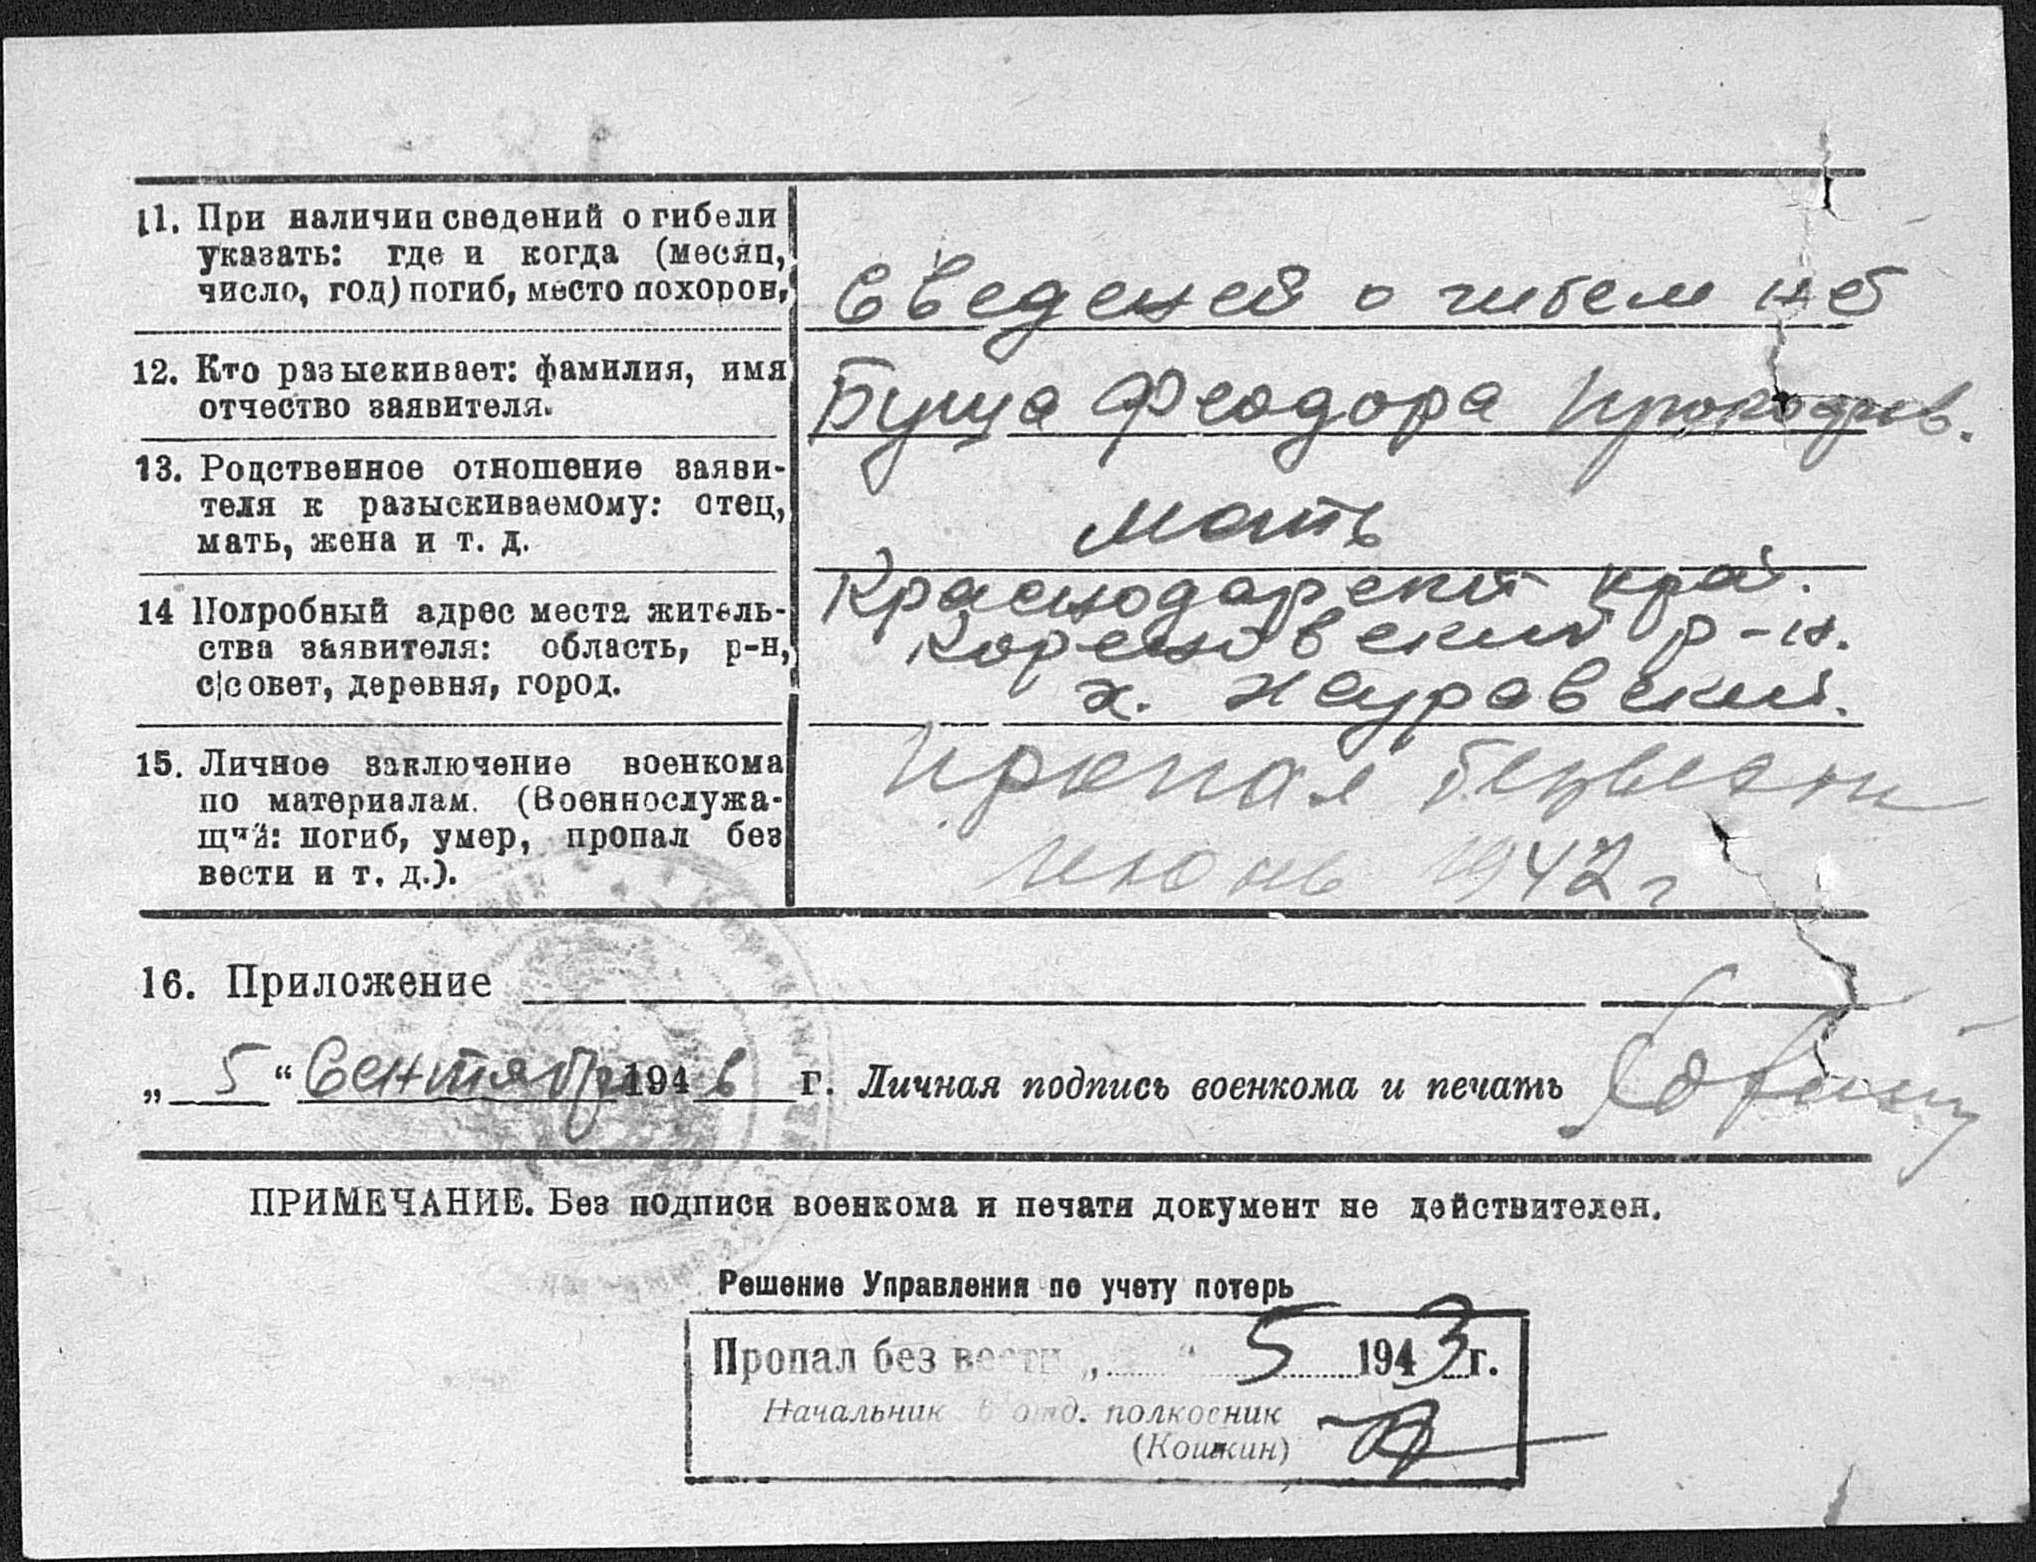 11. При наличии сведений о гибели
указать: где и когда (месяц,
число, год) погиб, место похорон,
Сведеней о гибели не
12. Кто разыскивает: фамилия, имя
отчество заявителя.
Буща Феодора Прокофив.
13. Родственное отношение заяви-
теля к разыскиваемому: отец,
мать, жена и т. д.
мать
14 Подробный адрес места житель-
ства заявителя: область, р-н,
с|совет, деревня, город.
Краснодарский край.
Кореновский р-н.
х. Журавский.
15. Личное заключение военкома
по материалам. (Военнослужа-
щий: погиб, умер, пропал без
вести и т. д.).
Пропал без вести
июнь 1942 г
16. Приложение
„ 5 “ Сентября 1946 г. Личная подпись военкома и печать
ПРИМЕЧАНИЕ. Без подписи военкома и печати документ не действителен.
Решение Управления по учету потерь
Пропал без вести „ “ 5 1943 г.
Начальник 6 отд. полковник
(Кошкин)